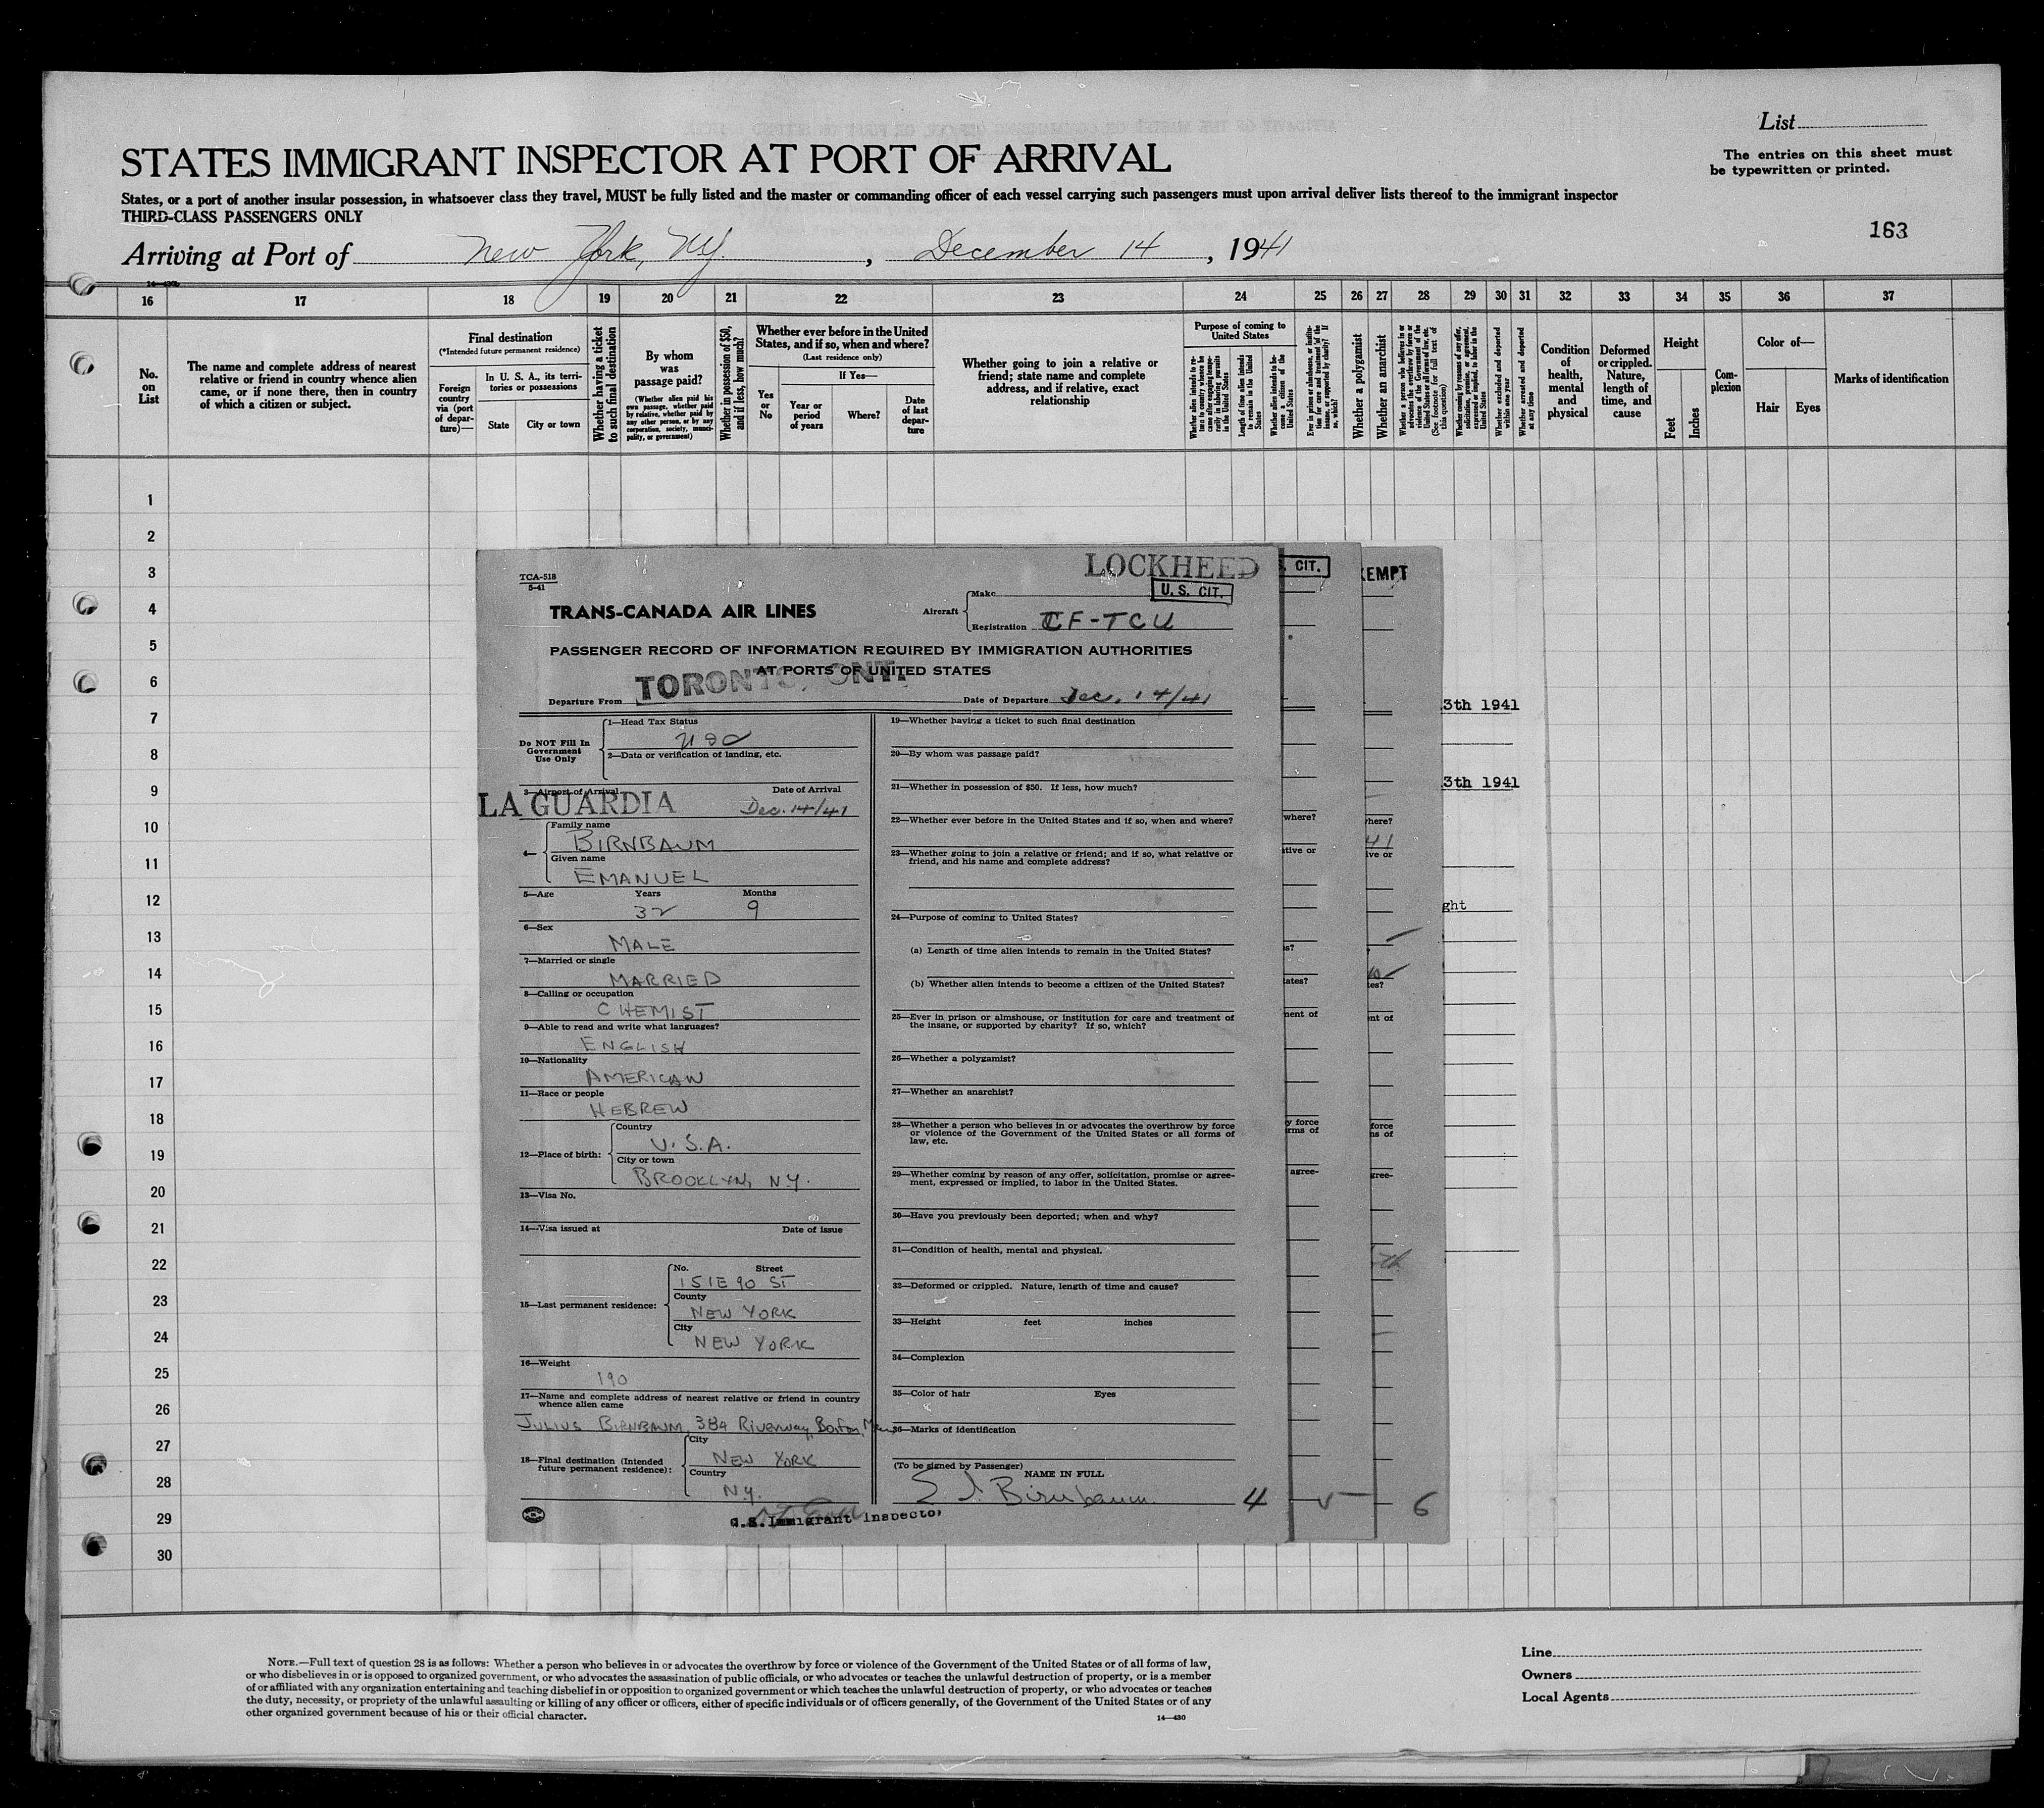 List
The entries on this sheet must
be typewritten or printed.
STATES IMMIGRANT INSPECTOR AT PORT OF ARRIVAL
States, or a port of another insular possession, in whatsoever class they travel, MUST be fully listed and the master or commanding officer of each vessel carrying such passengers must upon arrival deliver lists thereof to the immigrant inspector
THIRD-CLASS PASSENGERS ONLY
163
Arriving at Port of New York, NY. , December 14 , 1941
16 17 18 19 20 21 22 23 24 25 26 27 28 29 30 31 32 33 34 35 36 37
No. on List
The name and complete address of nearest
relative or friend in country whence alien
came, or if none there, then in country
of which a citizen or subject.
Final destination
(*Intended future permanent residence)
Foreign country via (port of departure)—
In U. S. A., its territories or possessions
State City or town
Whether having a ticket to such final destination
By whom was passage paid?
(Whether alien paid his own passage, whether paid by relative, whether paid by any other person, or by any corporation, society, municipality, or government)
Whether in possession of $50, and if less, how much?
Whether ever before in the United
States, and if so, when and where?
(Last residence only)
Yes or No
If Yes—
Year or period of years
Where?
Date of last departure
Whether going to join a relative or
friend; state name and complete
address, and if relative, exact
relationship
Purpose of coming to United States
Length of time alien intends to remain in the United States
Whether alien intends to become a citizen of the United States
Ever in prison or almshouse, or institution for care and treatment of the insane, or supported by charity? If so, which?
Whether a polygamist
Whether an anarchist
(See footnote for full text of this question)
Whether excluded and deported within one year
Whether arrested and deported at any time
Condition of health, mental and physical
Deformed or crippled. Nature, length of time, and cause
Height
Feet Inches
Complexion
Color of—
Hair Eyes
Marks of identification
1
2
3
4
5
6
7
8
9
10
11
12
13
14
15
16
17
18
19
20
21
22
23
24
25
26
27
28
29
30
TCA-518
5-41
LOCKHEED
TRANS-CANADA AIR LINES
Aircraft
Make
U. S. CIT.
Registration CF-TCU
PASSENGER RECORD OF INFORMATION REQUIRED BY IMMIGRATION AUTHORITIES
AT PORTS OF UNITED STATES
Departure From TORONTO, ONT. Date of Departure Dec. 14/41
Do NOT Fill In
Government
Use Only
1—Head Tax Status
USC
2—Data or verification of landing, etc.
3—Airport of Arrival Date of Arrival
LA GUARDIA Dec. 14/41
4—
Family name
BIRNBAUM
Given name
EMANUEL
5—Age Years Months
32 9
6—Sex
MALE
7—Married or single
MARRIED
8—Calling or occupation
CHEMIST
9—Able to read and write what languages?
ENGLISH
10—Nationality
AMERICAN
11—Race or people
HEBREW
12—Place of birth:
Country
U.S.A.
City or town
BROOKLYN, N.Y.
13—Visa No.
14—Visa issued at Date of issue
15—Last permanent residence:
No. Street
151E 90 ST
County
NEW YORK
City
NEW YORK
16—Weight
190
17—Name and complete address of nearest relative or friend in country
whence alien came
JULIUS BIRNBAUM, 384 Riverway, Boston, Mass
18—Final destination (Intended
future permanent residence):
City
NEW YORK
Country
N.Y.
U.S. Immigrant Inspector
19—Whether having a ticket to such final destination
20—By whom was passage paid?
21—Whether in possession of $50. If less, how much?
22—Whether ever before in the United States and if so, when and where?
23—Whether going to join a relative or friend; and if so, what relative or
friend, and his name and complete address?
24—Purpose of coming to United States?
(a) Length of time alien intends to remain in the United States?
(b) Whether alien intends to become a citizen of the United States?
25—Ever in prison or almshouse, or institution for care and treatment of
the insane, or supported by charity? If so, which?
26—Whether a polygamist?
27—Whether an anarchist?
28—Whether a person who believes in or advocates the overthrow by force
or violence of the Government of the United States or all forms of
law, etc.
29—Whether coming by reason of any offer, solicitation, promise or agree-
ment, expressed or implied, to labor in the United States.
30—Have you previously been deported; when and why?
31—Condition of health, mental and physical.
32—Deformed or crippled. Nature, length of time and cause?
33—Height feet inches
34—Complexion
35—Color of hair Eyes
36—Marks of identification
(To be signed by Passenger)
NAME IN FULL
E J. Birnbaum
4
CIT.
where?
ative or
s?
tates?
ment of
y force
rms of
agree-
5
EMPT
where?
41
ive or
?
tes?
nt of
force
ns of
gree-
6
3th 1941
3th 1941
ght
NOTE.—Full text of question 28 is as follows: Whether a person who believes in or advocates the overthrow by force or violence of the Government of the United States or of all forms of law,
or who disbelieves in or is opposed to organized government, or who advocates the assassination of public officials, or who advocates or teaches the unlawful destruction of property, or is a member
of or affiliated with any organization entertaining and teaching disbelief in or opposition to organized government or which teaches the unlawful destruction of property, or who advocates or teaches
the duty, necessity, or propriety of the unlawful assaulting or killing of any officer or officers, either of specific individuals or of officers generally, of the Government of the United States or of any
other organized government because of his or their official character.
14—430
Line
Owners
Local Agents